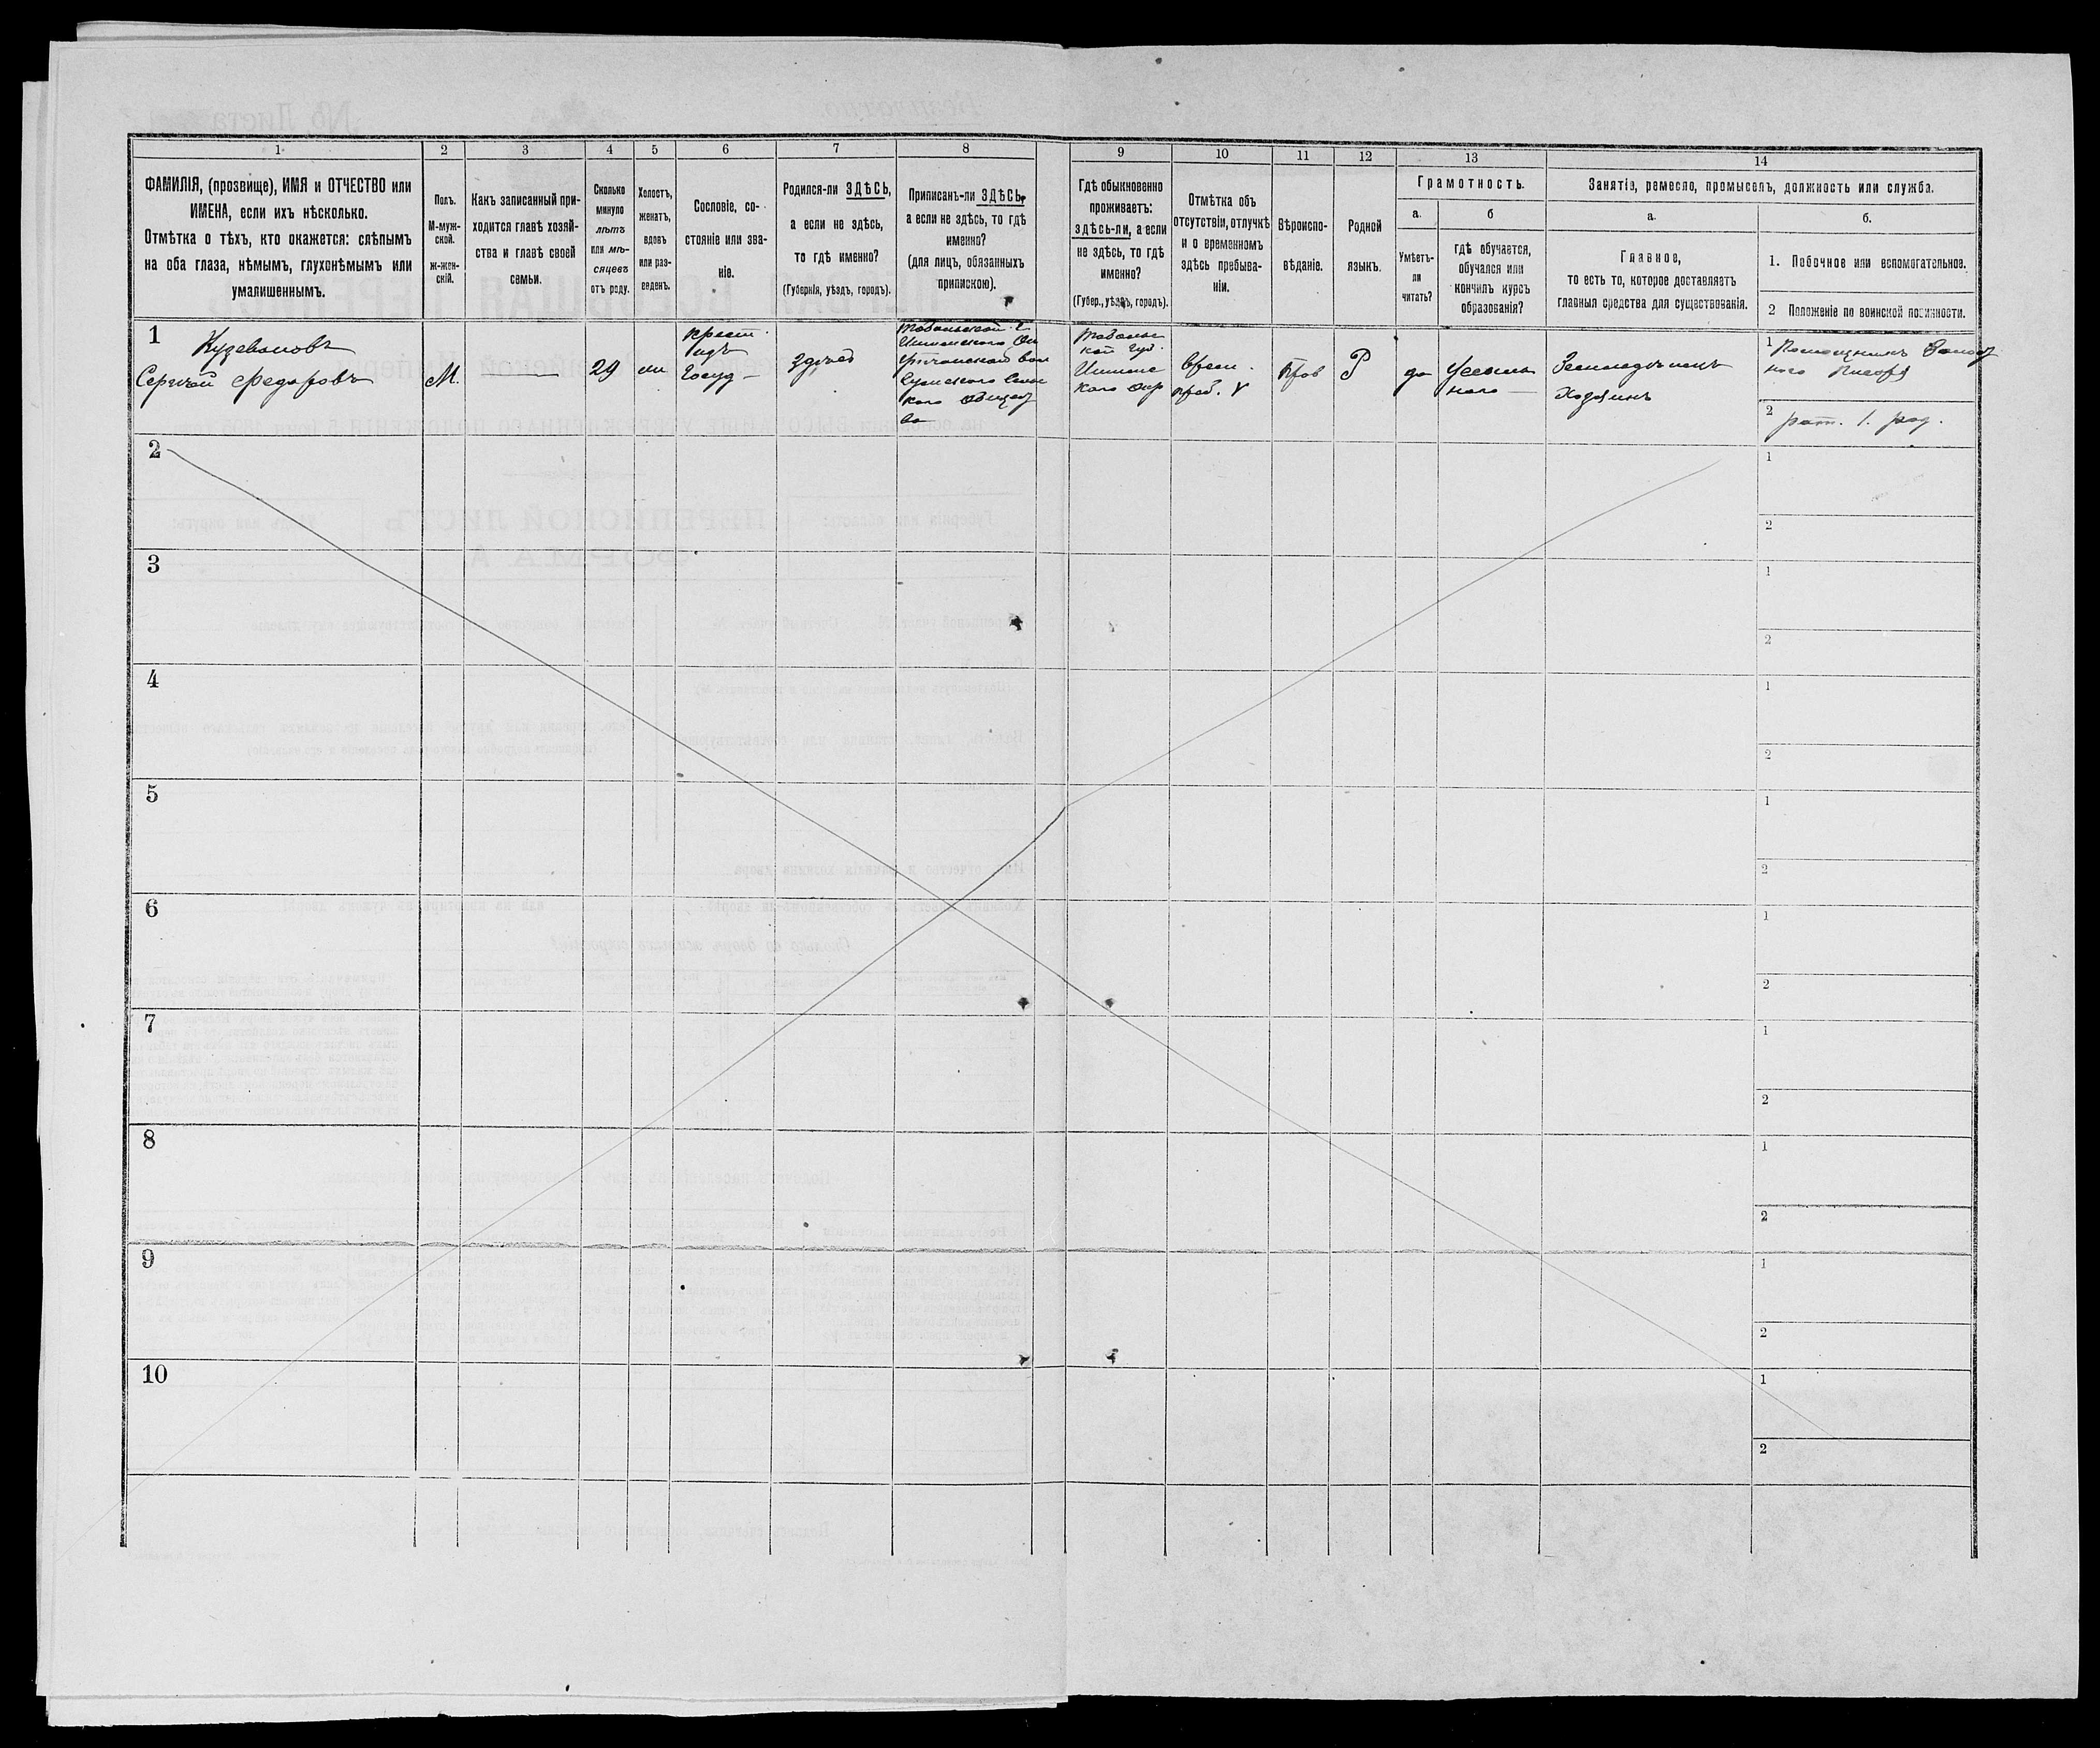 1 2 3 4 5 6 7 8 9 10 11 12 13 14
ФАМИЛІЯ, (прозвище), ИМЯ и ОТЧЕСТВО или
ИМЕНА, если ихъ нѣсколько.
Отмѣтка о тѣхъ, кто окажется: слѣпымъ
на оба глаза, нѣмымъ, глухонѣмымъ или
умалишеннымъ.
Полъ.
М-муж-
ской.
ж-жен-
скій.
Какъ записанный при-
ходится главѣ хозяй-
ства и главѣ своей
семьи.
Сколько
минуло
лѣтъ
или мѣ-
сяцевъ
отъ роду.
Холостъ,
женатъ,
вдовъ
или раз-
веденъ.
Сословіе, со-
стояніе или зва-
ніе.
Родился-ли ЗДѢСЬ,
а если не здѣсь,
то гдѣ именно?
(Губернія, уѣздъ, городъ).
Приписанъ-ли ЗДѢСЬ,
а если не здѣсь, то гдѣ
именно?
(для лицъ, обязанныхъ
припискою).
Гдѣ обыкновенно
проживаетъ:
здѣсь-ли, а если
не здѣсь, то гдѣ
именно?
(Губер., уѣздъ, городъ).
Отмѣтка объ
отсутствіи, отлучкѣ
и о временномъ
здѣсь пребыва-
ніи.
Вѣроиспо-
вѣданіе.
Родной
языкъ.
Грамотность.
а.
Умѣетъ-
ли
читать?
б
гдѣ обучается,
обучался или
кончилъ курсъ
образованія?
Занятіе, ремесло, промыселъ, должность или служба.
а.
Главное,
то есть то, которое доставляетъ
главныя средства для существованія.
б.
1. Побочное или вспомогательное.
2 Положеніе по воинской повинности.
1
Кузевановъ
Сергѣй Федоровъ
М.
29
крест
Госуд
здѣсь
Тобольской Г
Ишимскаго Ок
Тоболь
кой Губ.
Ишимс
каго Окр
Врем.
преб.
Прав
Р
да
Земледѣлецъ
Хозяинъ
1 Помощникъ
наго Писаря
2 рат. 1. раз.
2 1
2
3 1
2
4 1
2
5 1
2
6 1
2
7 1
2
8 1
2
9 1
2
10 1
2